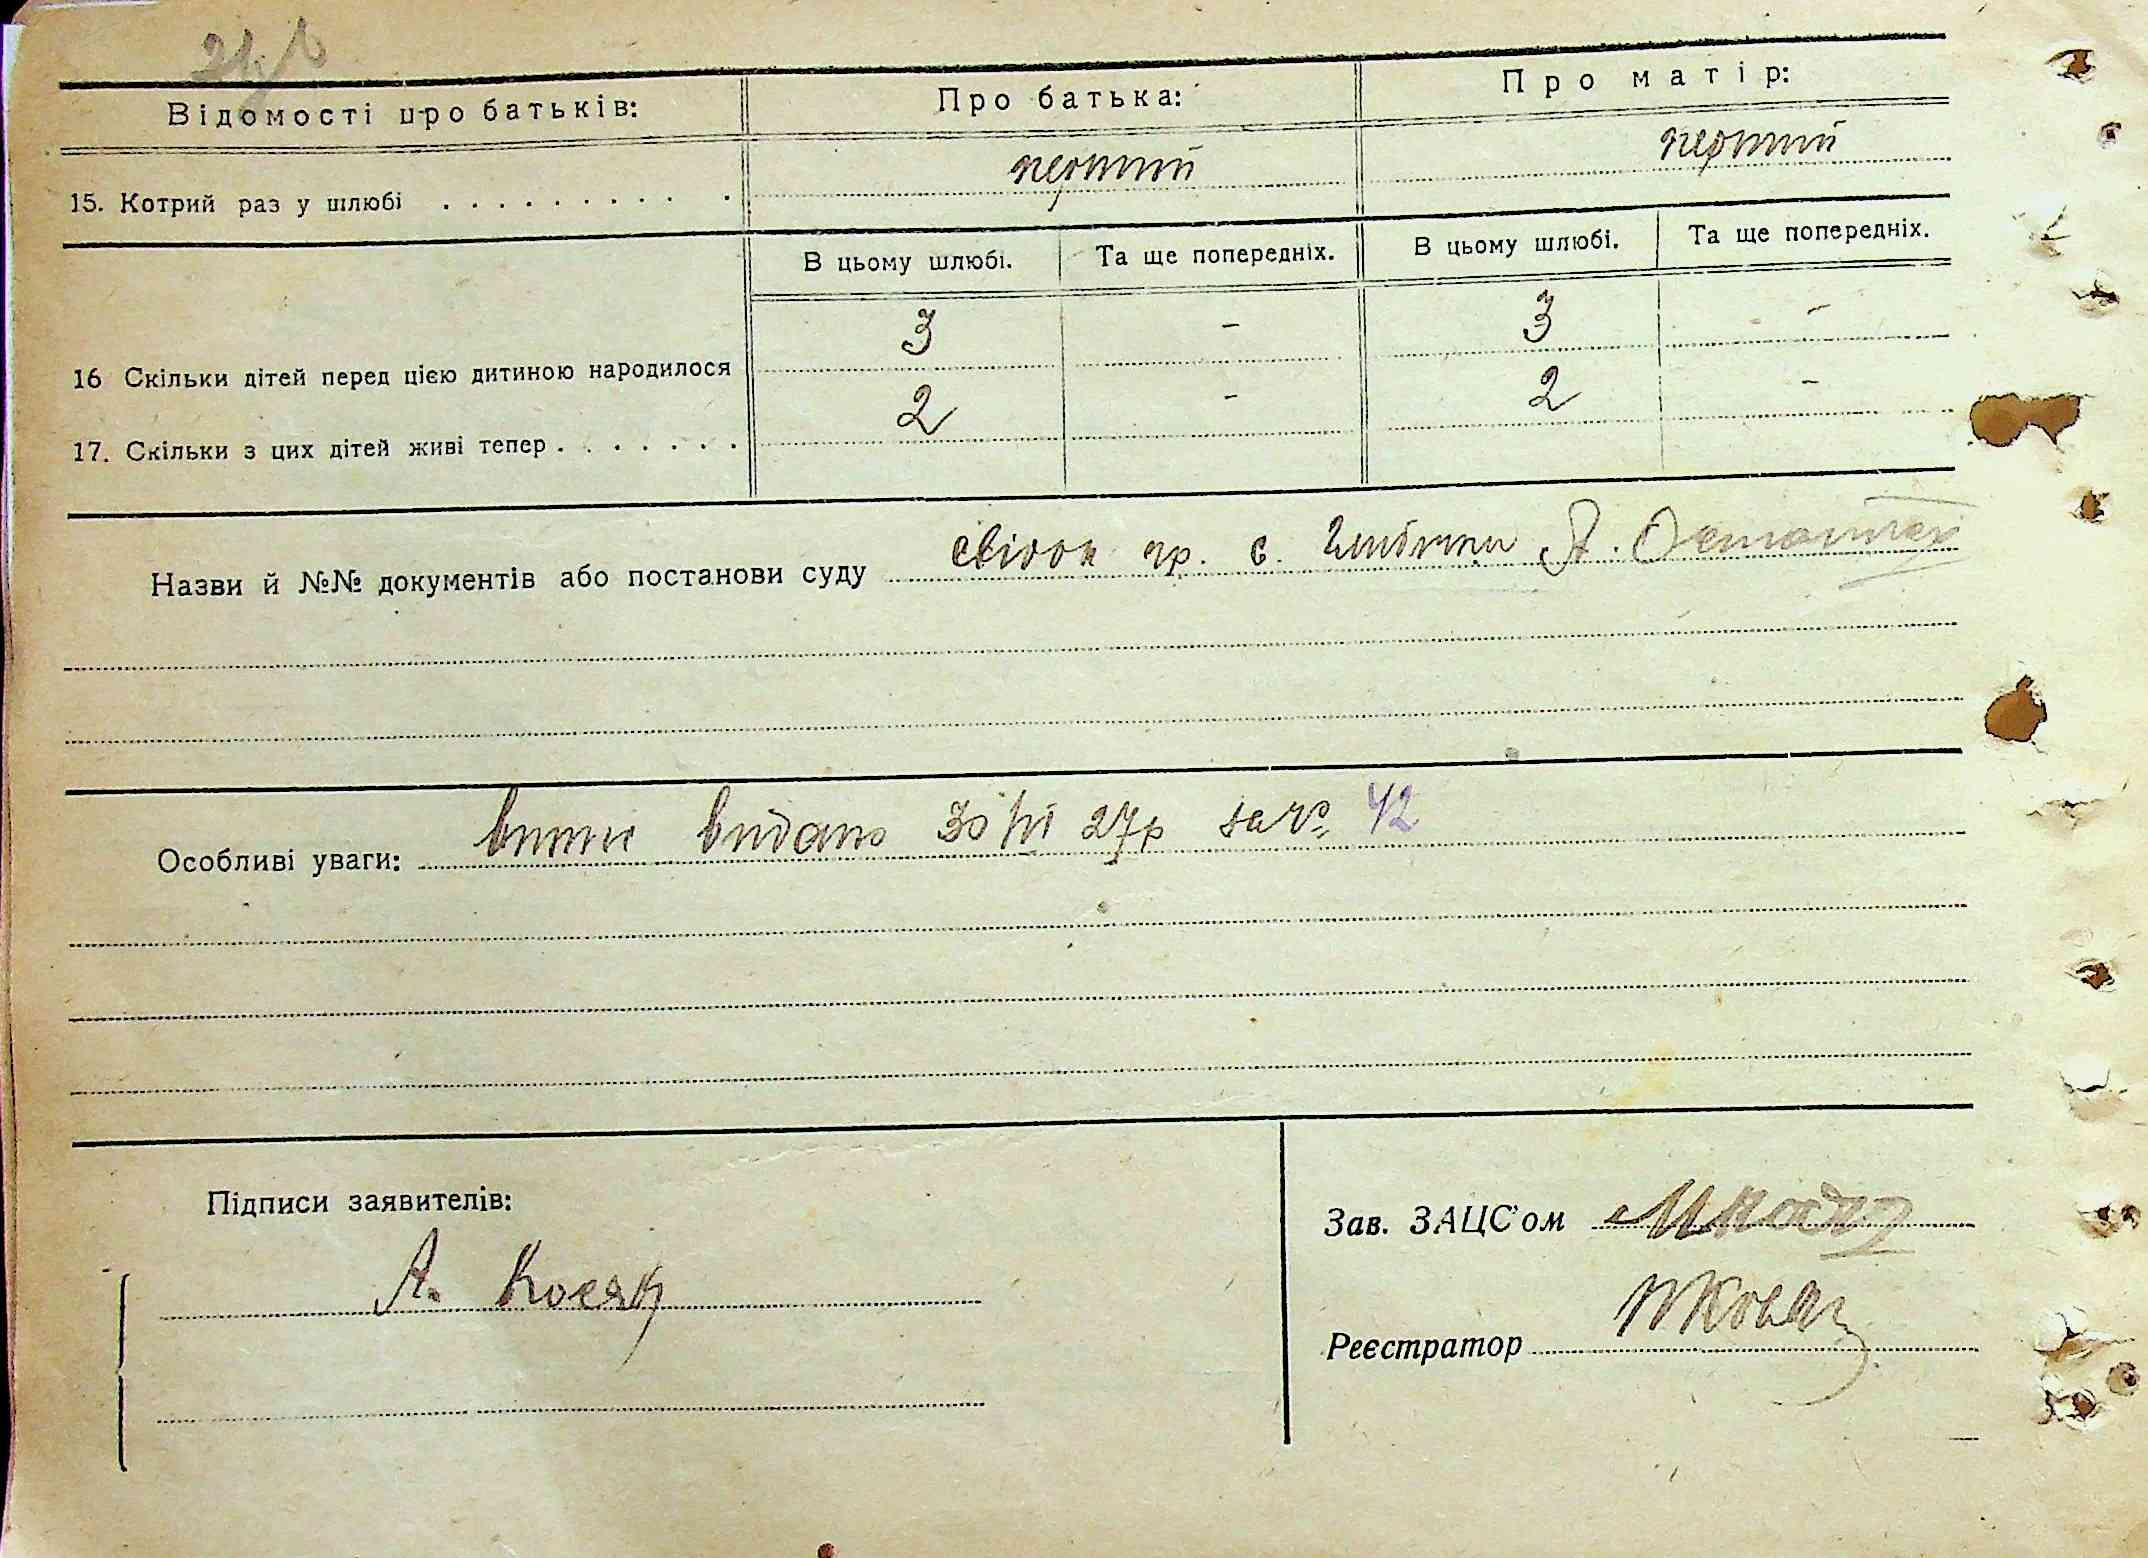 Відомості про батьків:
Про батька:
Про матір:
15. Котрий раз у шлюбі . . . . . . . . . .
перший
перший
В цьому шлюбі.
Та ще попередніх.
В цьому шлюбі.
Та ще попередніх.
16 Скільки дітей перед цією дитиною народилося
3
-
3
-
17. Скільки з цих дітей живі тепер . . . . . . .
2
-
2
-
Назви й №№ документів або постанови суду свідок гр. с. А.
Особливі уваги: витяг видано 30/VI 27р за № 42
Підписи заявителів:
А. Косяк
Зав. ЗАЦС'ом
Реєстратор